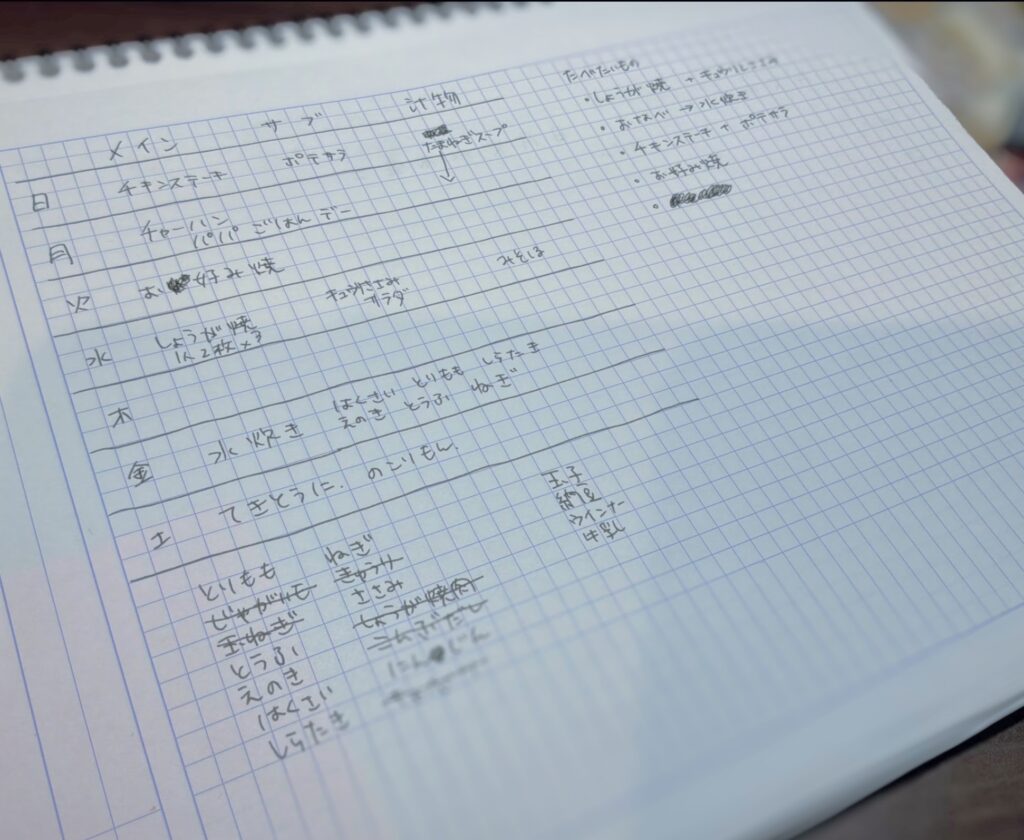 メイン サブ 汁物
日 チキンステーキ ポテサラ たまねぎスープ
月 チャーハン
パパごはんデー
火 お好み焼
みそしる
水 しょうが焼
1人2枚×3
キュウリささみ
サラダ
木
金 水炊き
はくさい とりもも しらたき
えのき とうふ ねぎ
土 てきとうに. のこりもん.
たべたいもの
・しょうが焼 + キュウリささみ
・おなべ → 水炊き
・チキンステーキ + ポテサラ
・お好み焼
・
とりもも
じゃがいも
玉ねぎ
とうふ
えのき
はくさい
しらたき
ねぎ
きゅうり
ささみ
しょうが焼肉
こんぶだし
にんじん
玉子
納豆
ウインナー
牛乳